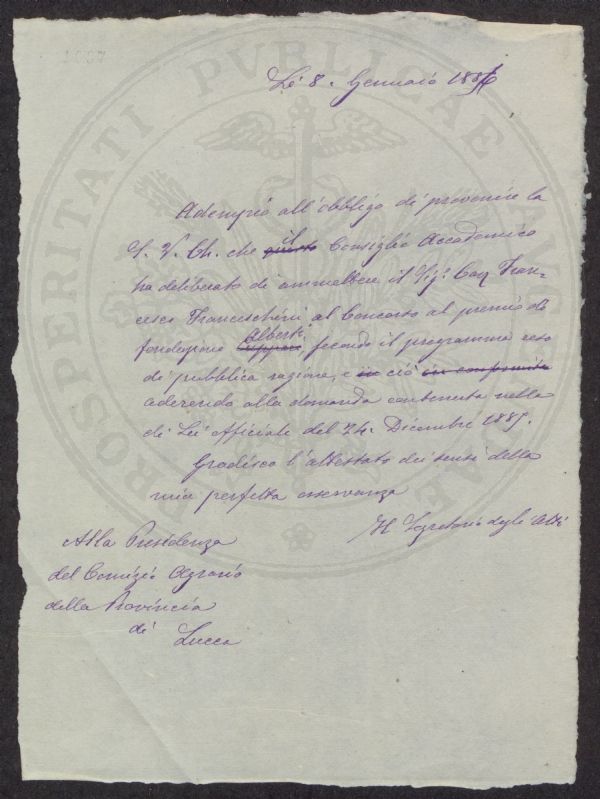 Lì 8. Gennaio 1886
Adempio all'obbligo di prevenire la
S. V. Ch. che questo il Consiglio Accademico
ha deliberato di ammettere il Sig.r Cav Fran-
cesco Franceschini al Concorso al premio di
fondazione Alberti, secondo il programma reso
di pubblica ragione, e in ciò in conformità
aderendo alla domanda contenuta nella
di Lei Officiale del 24. Dicembre 1885.
Gradisca l'attestato dei sensi della
mia perfetta osservanza
Il Segretario degli Atti
Alla Presidenza
del Comizio Agrario
della Provincia
di
Lucca
PROSPERITATI PVBLICAE